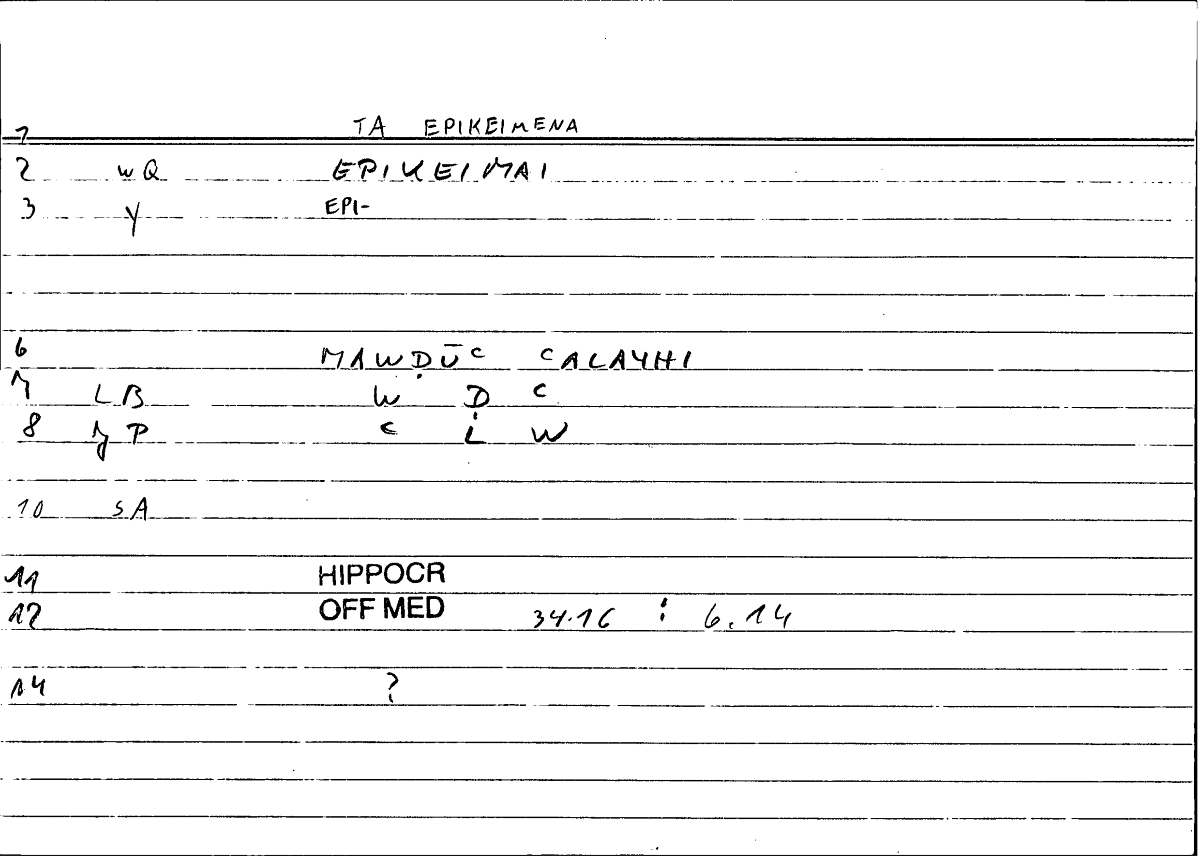 1 TA EPIKEIMENA
2 wQ EPIKEIMAI
3 y EPI-
6 MAWḌŪC CALAYHI
7 LB W Ḍ C
8 P C L W
10 SA
11 HIPPOCR
12 OFF MED 34.16 : 6.14
14 ?